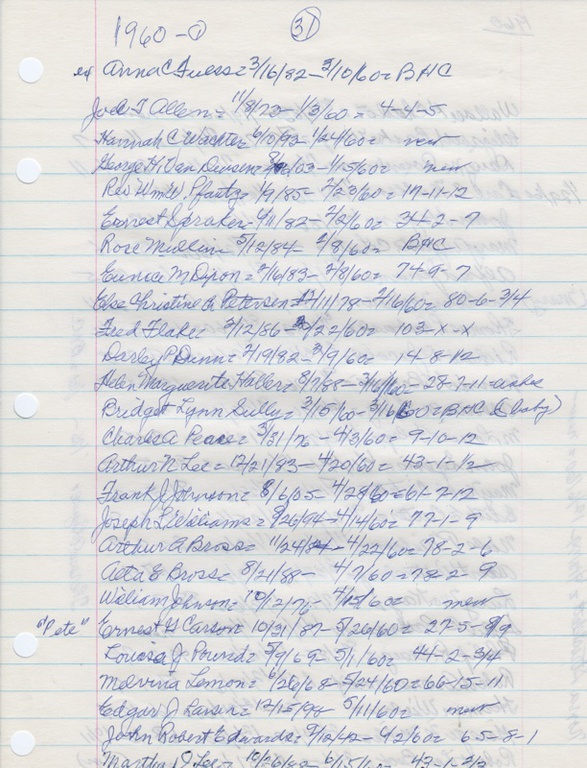 1960-① 31
Anna C Fuess = 3/16/82 - 2/10/60 = BHC
Joel T Allen = 11/8/73 - 1/3/60 = 4-4-5
Hannah C Wachter 6/10/93 - 1/24/60 = new
George H. Van Deusen /03 - 1/15/60 = new
Rev Wm W. Pfautz = 1/9/85 - 2/23/60 = 17-11-12
Ernest Spraker - 4/11/82 - 2/2/60 = 34-2-7
Rose Mullin = 5/12/84 - 2/8/60 = BHC
Eunice M Dixon = 2/16/83 - 2/8/60 = 74-9-7
Else Christine A Petersen = 11/78 - 2/16/60 = 80-6-3/4
Fred Flake = 2/12/86 - 2/22/60 = 103-x-x
Darley P Dunn = 2/19/82 - 3/9/60 = 14-8-1/2
Helen Marguerite Haller = 8/7/88 - 3/16/60 - 28-7-11 = ashes
Bridget Lynn Sully = 3/15/60 - 3/16/60 = BHC (baby)
Charles A Pease = 3/31/76 - 4/3/60 = 9-10-12
Arthur N Lee = 12/21/83 - 4/20/60 = 43-1-1/2
Frank J Johnson = 8/6/05 - 4/28/60 = 61-7-12
Joseph L Williams = 8/26/94 - 4/14/60 = 77-1-9
Arthur A Bross = 11/24/84 - 4/22/60 = 78-2-6
Acta E Bross = 8/21/88 - 4/7/60 = 78-2-9
William Johnson = 10/12/76 - 4/15/60 = new
"Pete" Ernest H Carson = 10/31/87 - 5/26/60 = 27-5-8/9
Louisa J Pound = 5/9/69 - 5/1/60 = 44-2-3/4
Melvina Lemon = 6/26/68 - 5/24/60 = 66-15-11
Edgar J Larsen = 12/15/98 5/11/60 = new
John Robert Edwards = 9/12/42 - 4/2/60 = 65-8-1
Martha D Lee = 10/26/82 - 6/15/60 = 43-1-2/3